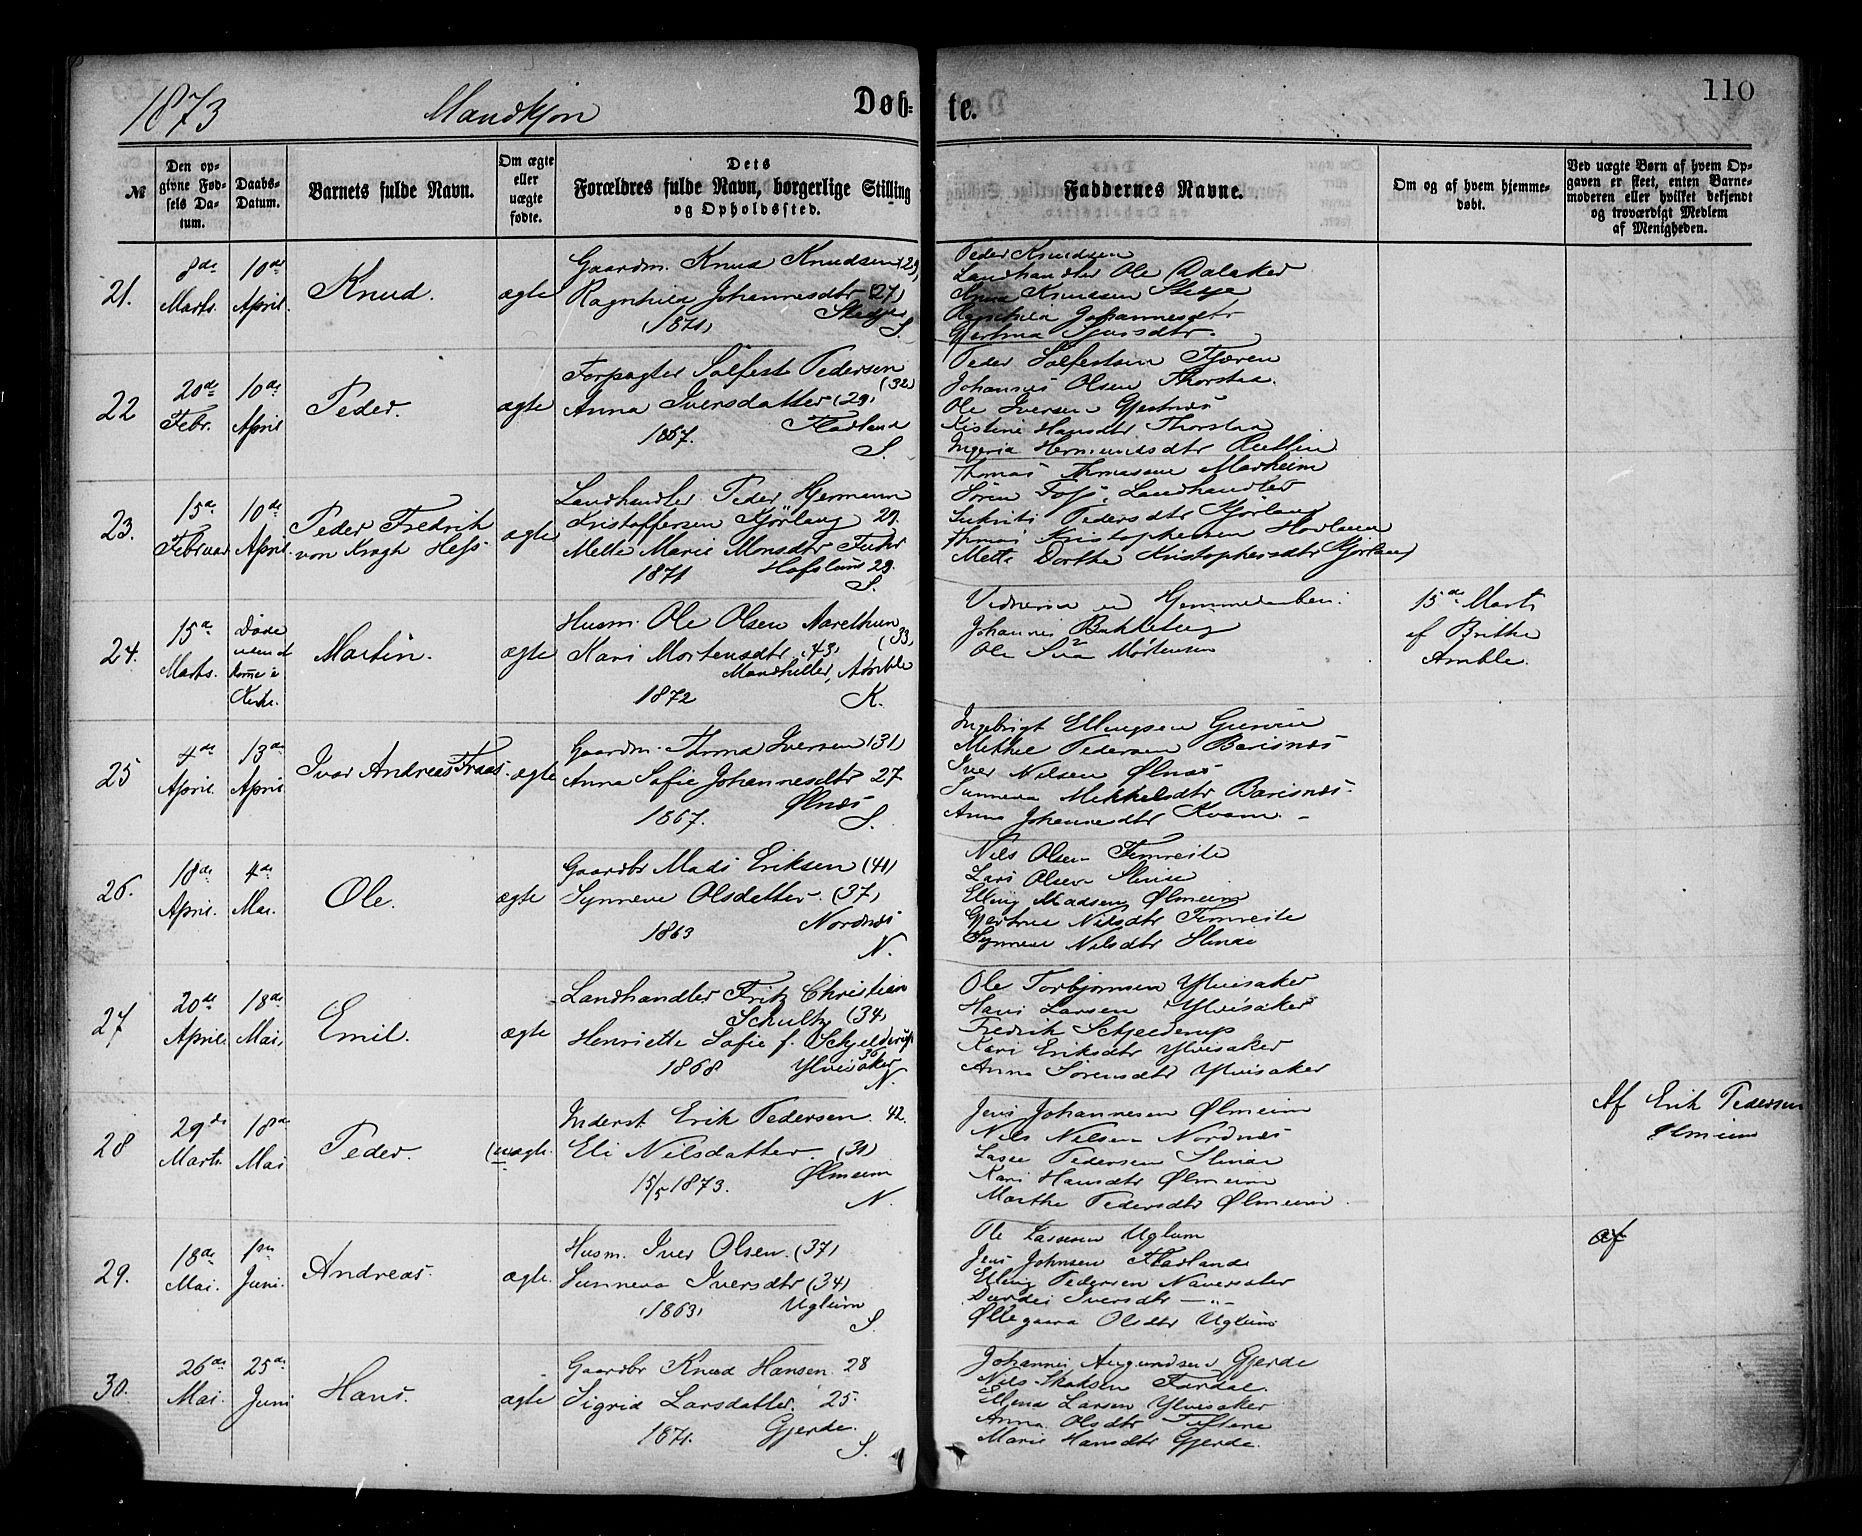 1873 Mandkjøn Døb-te. 110
№
Den opgivne Fødsels Datum.
Daabs-Datum.
Barnets fulde Navn.
Om ægte eller uægte fødte.
Dets
Forældres fulde Navn, borgerlige Stilling
og Opholdssted.
Faddernes Navne.
Om og af hvem hjemmedøbt.
Ved uægte Børn af hvem Opgaven er skeet, enten Barnemoderen eller hvilket bekjendt og troværdigt Medlem af Menigheden.
21. 8de Marts. 10de April. Knud. ægte
Gaardm. Knud Knudsen (29)
Ragnhild Johannesdtr (27)
1871 Stedje
S.
Peder Knudsen
Landhandler Ole Dalaker
Knudsen Stedje
Ragnhild Johannesdtr
Gjertrud
22 20de Febr. 10de April Peder. ægte
Forpagter Solfest Pedersen (32)
Anna Iversdatter (29)
1867. Fladland
S.
Peder Solfestsen Fjæren
Johannes Olsen Thorstad.
Ole Iversen Gjertnæs
Kistine Hansdtr Thorstad
Ingerid Hermundsdtr
23. 15de Februar 10de April. Peder Fredrik von Krogh Hess. ægte
Landhandler Peder Hermann
Kristoffersen Kjørlaug 29.
Mette Marie Monsdtr Fuhr
1871 Hofslund 29.
S.
Thomas Thomasen Marheim
Søren Foss, Landhandler
Pedersdtr Kjørlaug
Thomas Kristophersen Hovland
Mette Dorthe Kristophersdtr Kjørlaug
24. 15de Marts. Døde uden at komme i Kirke. Martin. ægte
Husm. Ole Olsen Aarethun (33)
Kari Mortensdtr 43,
Mandheller, Amble
1872 K.
Vidnerne ved Hjemmedaaben:
Johannes Bakketeig
Ole Mortensen
15de Marts
af Brithe
Amble.
25 4de April. 13de April Ivar Andreas Fraas. ægte
Gaardm. Iversen (31)
Anna Sofie Johannesdtr 27
1867. Ølnæs
S.
Ingebrigt Ellingsen
Mikkel Pedersen Barsnæs
Iver Nilsen Ølnæs
Sunneva Mikkelsdtr Barsnæs.
Anna Johannesdtr Kvam.
26. 18de April. 4de Mai. Ole. ægte
Gaardbr Mads Eriksen (41)
Synneve Olsdatter. (37)
1863 Nordnæs
N.
Nils Olsen Fimreite
Lars Olsen Slinde
Elling Madsen Ølmeim
Gjertrud Nilsdtr Fimreite
Synneve Nilsdtr Slinde
27 20de April 18de Mai, Emil. ægte
Landhandler Fritz Christian
Schultz (34)
Henriette Sofie f. Schjelderup
1868 Ylvisaker
N.
Ole Torbjørnsen Ylvisaker
Hans Larsen Ylvisaker
Fredrik Schjelderup
Kari Eriksdtr Ylvisaker
Anna Sørensdtr Ylvisaker
28 29de Marts 18de Mai Peder. (uægte.
Inderst Erik Pedersen. 42.
Eli Nilsdatter. (31)
15/5 1873. Ølmeim
N.
Jens Johannesen Ølmeim
Nils Nilsen Nordnæs
Lasse Pedersen Slinde
Kari Hansdtr Ølmeim
Marthe Pedersdtr Ølmeim.
Af Erik Pedersen
Ølmeim
29. 18de Mai. 1ste Juni. Andreas. ægte.
Husm. Iver Olsen. (37)
Sunneva Iversdtr (34)
1863, Uglum
S.
Ole Uglum
Jens Johnsen Fladland
Elling Pedersen Navarsater
Durdei Iversdtr — „ —
Øllegaard Olsdtr Uglum
af
30. 26de Mai. 25de Juni Hans. ægte
Gaardbr Knud Hansen 28
Sigrid Larsdatter. 25.
1871. Gjerde.
S.
Johannes Gjerde
Nils Fardal.
Larsen Ylvisaker
Anna Olsdtr
Marie Hansdtr Gjerde.